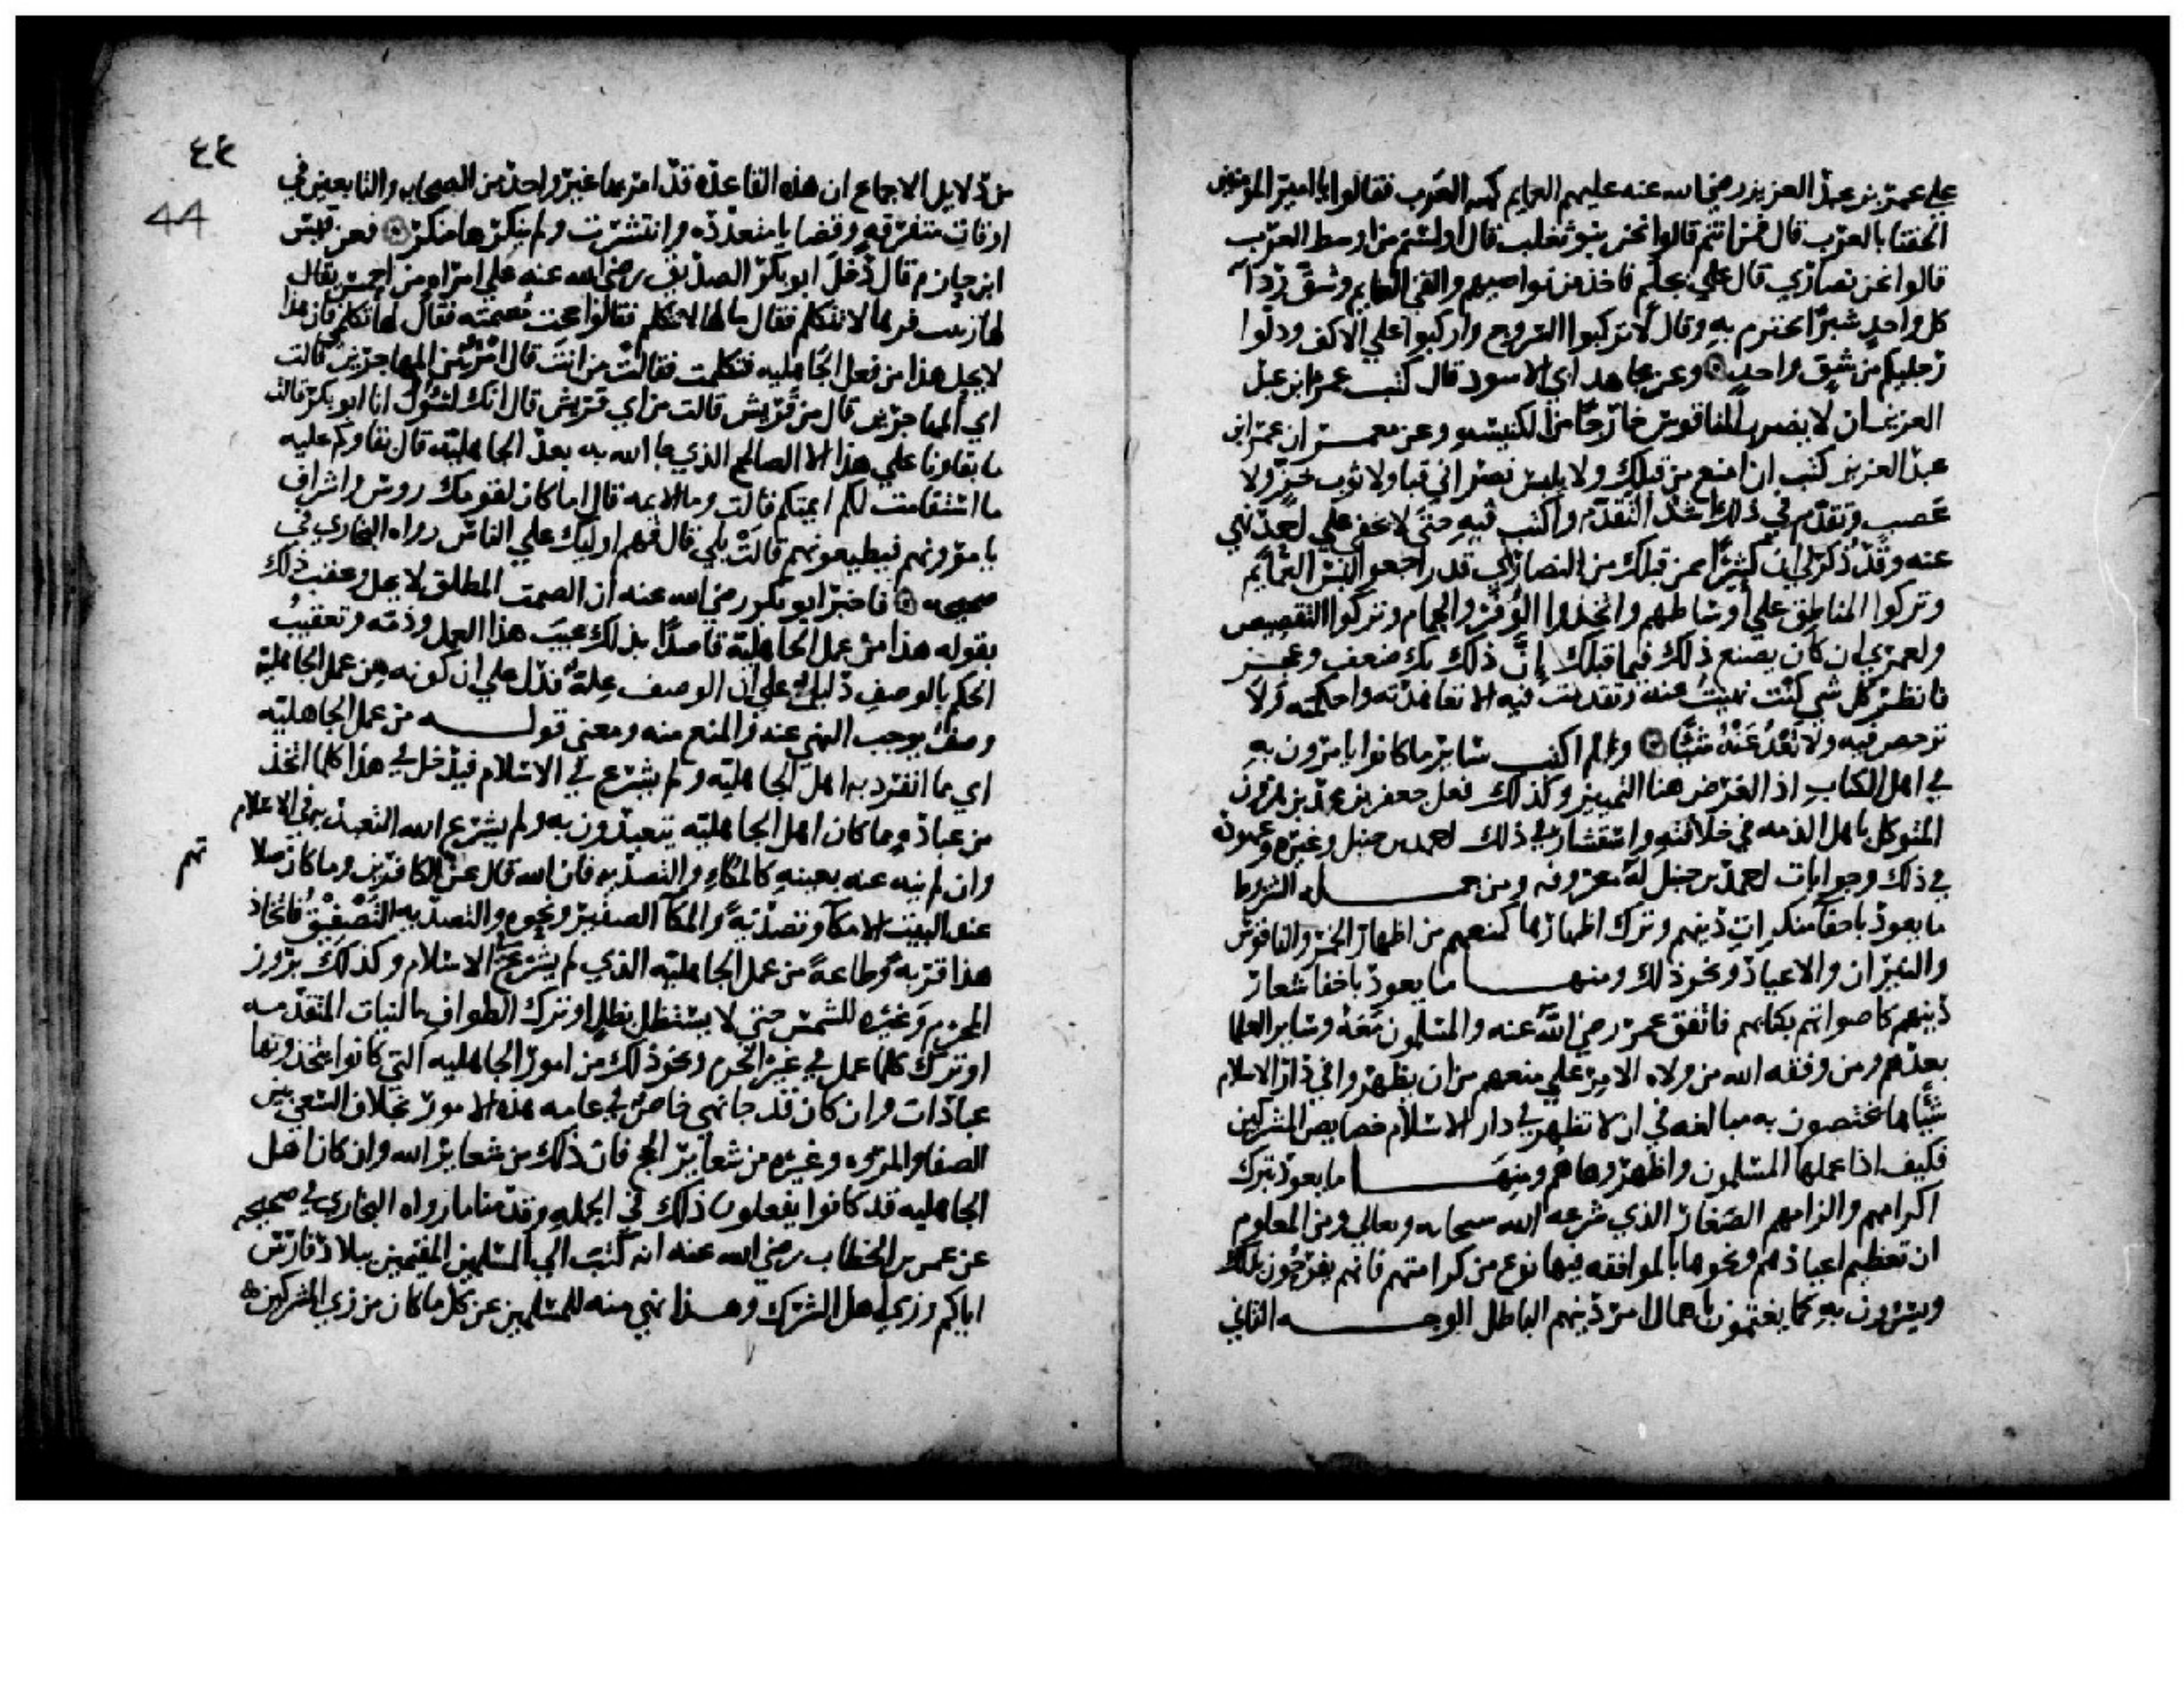 علي عمر بن عبد العزيز رضي الله عنه عليهم العمايم كهيه العرب فقالوا يا امير المومنين
الحقنا بالعرب قال فمن انتم قالوا نحن بنو تغلب قال اولستم من اوسط العرب
قالوا نحن نصاري قال علي بجلم فاخذ من نواصيهم والقي العمايم وشق ردا
كل واحد شبرا يحتزم به وقال لا تركبوا السروج واركبوا علي الاكف ودلوا
رجليكم من شق واحد وعن مجاهد ابي الاسود قال كتب عمر ابن عبد
العزيز ان لا يضرب الناقوس خارجا من الكنيسه وعن معمر ان عمر ابن
عبد العزيز كتب ان امنع من قبلك ولا يلبس نصراني قبا ولا ثوب خز ولا
عصب وتقدم في ذلك اشد التقدم واكتب فيه حتي لا يخفي علي احد نهي
عنه وقد ذكر لي ان كثيرا ممن قبلك من النصاري قد راجعوا لبس العمايم
وتركوا المناطق علي اوساطهم واتخذوا الوفر والجمام وتركوا التقصيص
ولعمري ان كان يصنع ذلك فيما قبلك إن ذلك بك ضعف وعجز
فانظر كل شي كنت نهيت عنه وتقدمت فيه الا تعاهدته واحكمته ولا
ترخص فيه ولا تعد عنه شيا ولم اكتب سائر ما كانوا يامرون به
في اهل الكتاب اذ الغرض هنا التمييز وكذلك فعل جعفر بن محمد بن هرون
المتوكل باهل الذمه في خلافته واستشار في ذلك احمد بن حنبل وغيره وعهوده
في ذلك وجوابات احمد بن حنبل له معروفه ومن جمله الشروط
ما يعود باخفا منكرات دينهم وترك اظهارها كمنعهم من اظهار الخمر والناقوس
والنيران والاعياد ونحو ذلك ومنها ما يعود باخفا شعار
دينهم كاصواتهم بكتابهم فاتفق عمر رضي الله عنه والمسلمون معه وساير العلما
بعدهم ومن وفقه الله من ولاه الامر علي منعهم من ان يظهروا في دار الاسلام
شيا مما يختصون به مبالغه في ان لا تظهر في دار الاسلام خصايص المشركين
فكيف اذا عملها المسلمون واظهروها هم ومنها ما يعود بترك
اكرامهم والزامهم الصغار الذي شرعه الله سبحانه وتعالي ومن المعلوم
ان تعظيم اعيادهم ونحوها بالموافقه فيها نوع من كرامتهم فانهم يفرحون بذلك
ويسرون به كما يغتمون باهمال امر دينهم الباطل الوجه الثاني
٤٤
44
من دلايل الاجماع ان هذه القاعده قد امر بها غير واحد من الصحابه والتابعين في
اوقات متفرقه وقضايا متعدده وانتشرت ولم ينكرها منكر فعن قيس
ابن حازم قال دخل ابو بكر الصديق رضي الله عنه علي امراه من احمس يقال
لها زينب فرءها لا تتكلم فقال ما لها لا تتكلم فقالوا حجت مصمته فقال لها تكلمي فان هذا
لا يحل هذا من فعل الجاهليه فتكلمت فقالت من انت قال امرؤ من المهاجرين قالت
اي المهاجرين قال من قريش قالت من اي قريش قال انك لسؤل انا ابو بكر قالت
ما بقاونا علي هذا الامر الصالح الذي جا الله به بعد الجاهلية قال بقاوكم عليه
ما استقامت لكم ايمتكم قالت وما الايمه قال اما كان لقومك روس واشراف
يامرونهم فيطيعونهم قالت بلي قال فهم اوليك علي الناس رواه البخاري في
صحيحه فاخبر ابو بكر رضي الله عنه ان الصمت المطلق لا يحل وعقب ذلك
بقوله هذا من عمل الجاهلية قاصدا بذلك عيب هذا العمل وذمه وتعقيب
الحكم بالوصف دليل علي ان الوصف علة فدل علي ان كونه من عمل الجاهلية
وصف يوجب النهي عنه والمنع منه ومعني قوله من عمل الجاهليه
اي مما انفرد به اهل الجاهليه ولم يشرع في الاسلام فيدخل في هذا كلما اتخذ
من عباده مما كان اهل الجاهليه يتعبدون به ولم يشرع الله التعبد به في الاسلام
وان لم ينه عنه بعينه كالمكاء والتصديه فان الله قال عن الكافرين وما كان صلا
تهم
عند البيت الا مكآ وتصديةً والمكآ الصفير ونحوه والتصديه التصفيق فاتخاذ
هذا قربه وطاعةً من عمل الجاهليه الذي لم يشرع في الاسلام وكذلك بروز
المحرم وغيره للشمس حتي لا يستظل بظل او ترك الطواف بالثياب المتقدمه
او ترك كلما عمل في غير الحرم ونحو ذلك من امور الجاهليه التي كانوا يتخذونها
عبادات وان كان قد جا نهي خاص في عامه هذه الامور بخلاف السعي بين
الصفا والمروه وغيره من شعاير الحج فان ذلك من شعاير الله وان كان اهل
الجاهليه قد كانوا يفعلون ذلك في الجمله وقدمنا ما رواه البخاري في صحيحه
عن عمر بن الخطاب رضي الله عنه انه كتب الي المسلمين المقيمين ببلاد فارس
اياكم وزي اهل الشرك وهذا نهي منه للمسلمين عن كل ما كان من زي المشركين